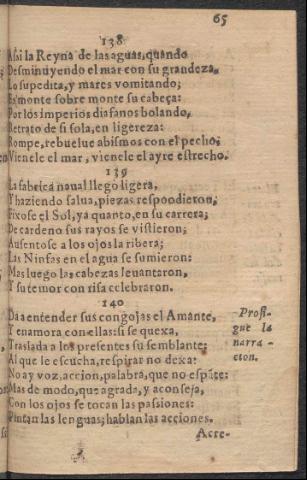 65
138
Assi la Reyna de las aguas, quando
Desminuyendo el mar con su grandeza,
Lo supedita, y mares vomitando;
Es monte sobre monte su cabeça:
Por los imperios diafanos bolando,
Retrato de si sola, en ligereza:
Rompe, rebuelue abismos con el pecho;
Vienele el mar, vienele el ayre estrecho.
139
La fabrica naual llego ligera,
Y haziendo salua, piezas respoodieron;
Fixose el Sol, ya quanto, en su carrera;
De cardeno sus rayos se vistieron;
Ausentose a los ojos la ribera;
Las Ninfas en el agua se sumieron:
Mas luego las cabezas leuantaron,
Y su temor con risa celebraron.
140
Da a entender sus congojas el Amante,
Y enamora con ellas: si se quexa,
Traslada a los presentes su semblante;
Al que le escucha, respirar no dexa:
No ay voz, accion, palabra, que no espãte:
Mas de modo, que agrada, y aconseja,
Con los ojos se tocan las passiones:
Pintan las lenguas; hablan las acciones.
Prosi-
gue la
narra-
cion.
Acre-